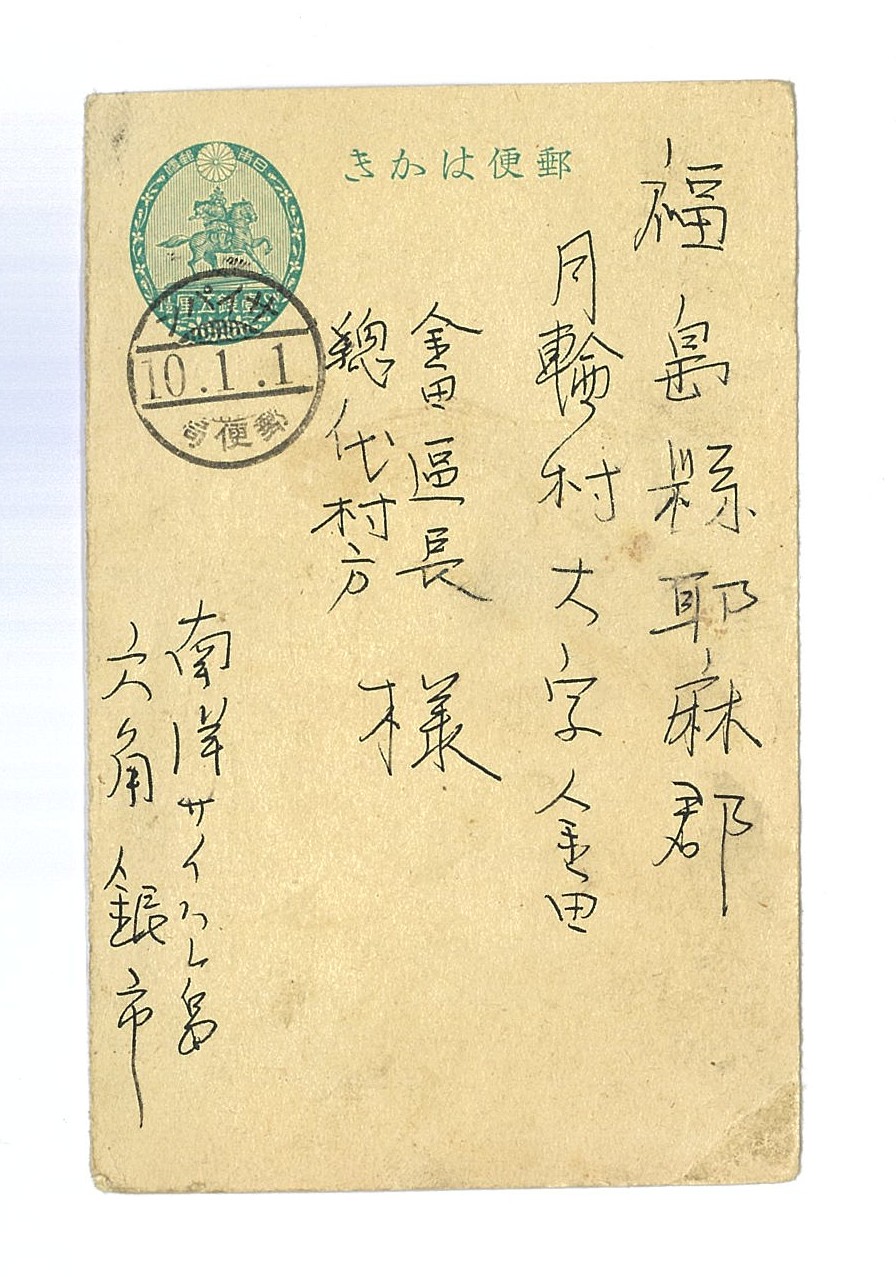 郵便はかき
壹錢五厘
サイパン
10.1.1
郵便局
福島縣耶麻郡
月輪村大字金田
金田區長
總代村方
様
南洋サイパン島
六角銀市